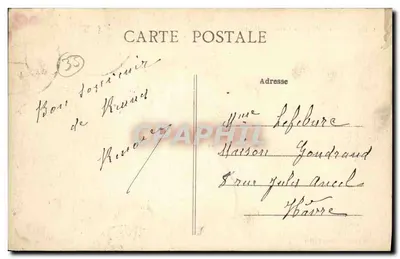 CARTE POSTALE
55
Bon souvenir
de Rennes
Adresse
Mme Lefebure
Maison Gondrand
8 rue Jules Ancel
Hâvre
CPHPHI